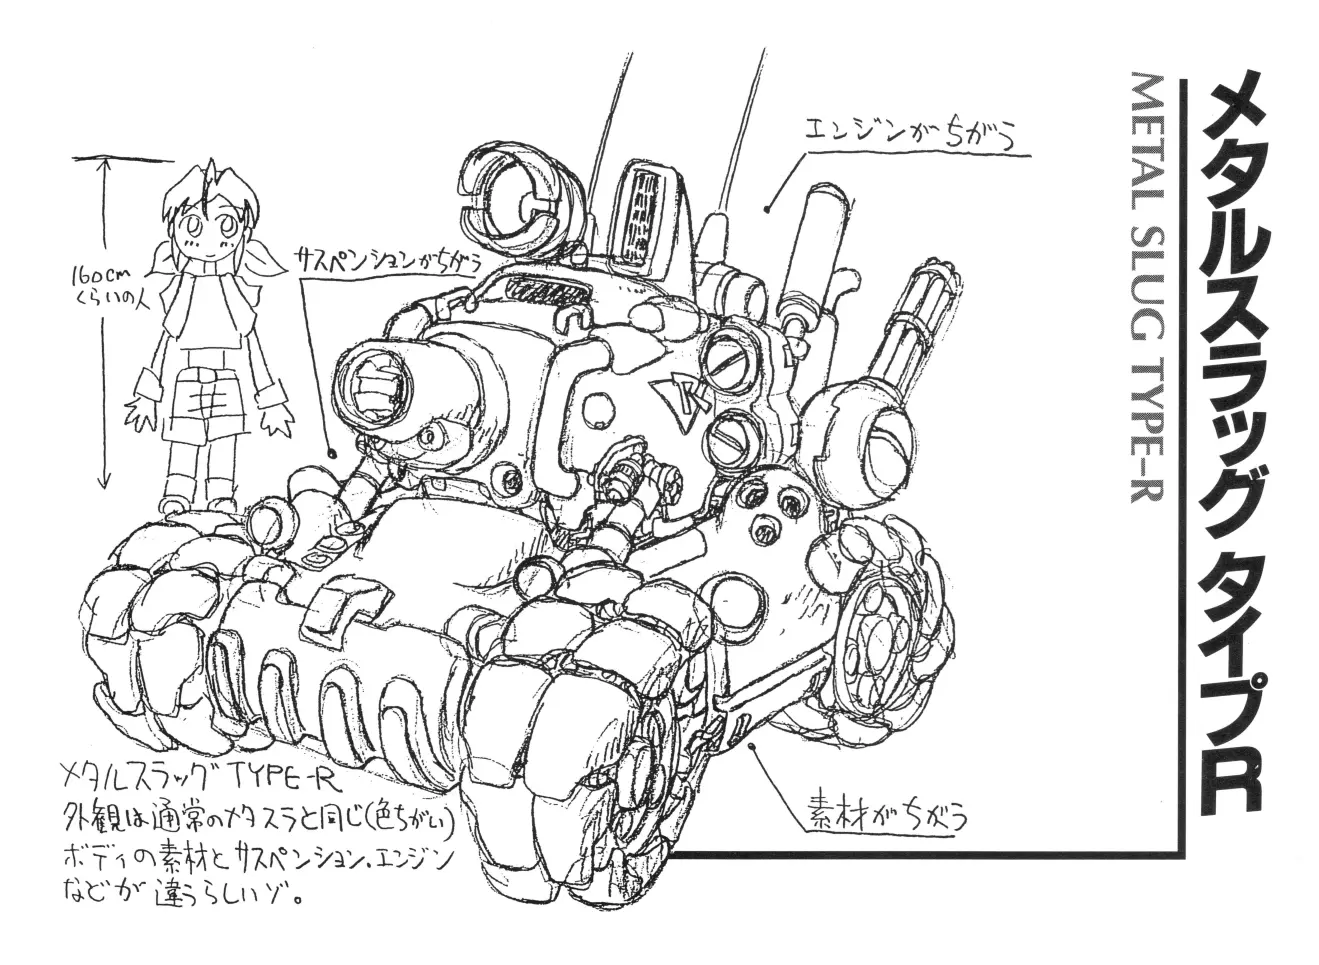 メタルスラッグ タイプR
METAL SLUG TYPE-R
エンジンがちがう
サスペンションがちがう
160cm
くらいの人
素材がちがう
メタルスラッグTYPE-R
外観は通常のメタスラと同じ(色ちがい)
ボディの素材とサスペンション、エンジン
などが違うらしいゾ。